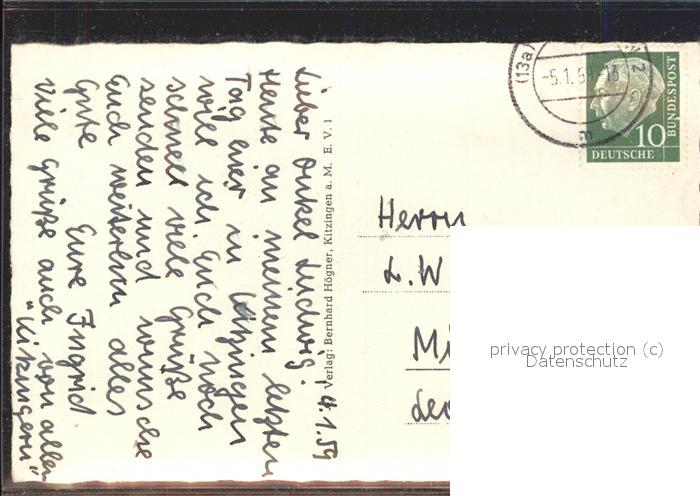 4.1.59
Lieber Onkel Ludwig!
Heute an meinem letzten
Tag hier in Kitzingen
will ich Euch noch
schnell viele Grüße
senden und wünsche
Euch weiterhin alles
Gute
Eure Ingrid
Viele Grüße auch von allen
"Kitzingern"
Verlag: Bernhard Högner, Kitzingen a. M. E. V. 1
(13a)
-5.1.59-18
DEUTSCHE
BUNDESPOST
10
Herrn
L. W
Mi
privacy protection (c)
Datenschutz